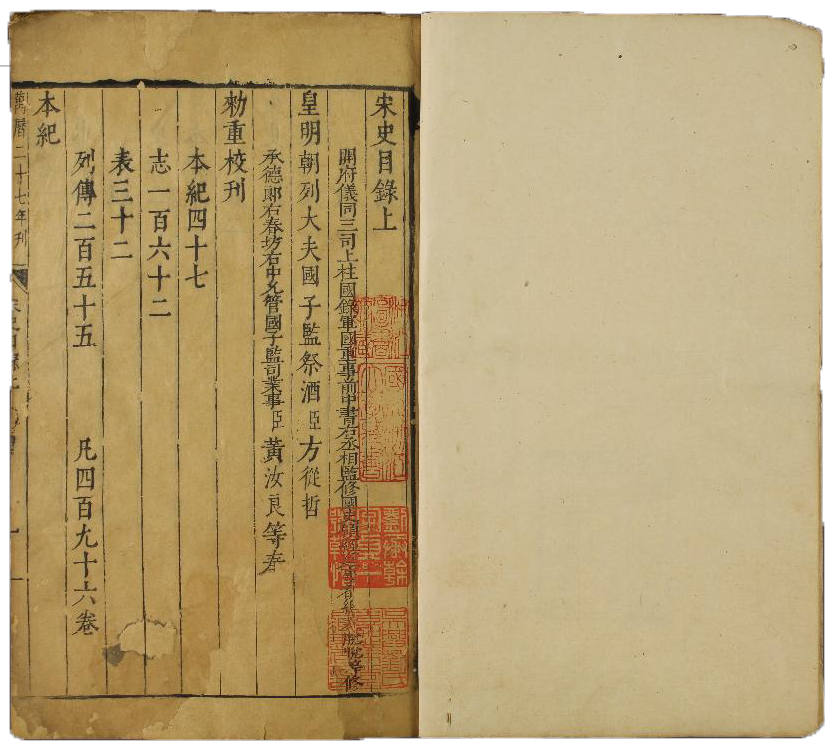 宋史目錄上
開府儀同三司上柱國錄軍國重事前中書右丞相監修國史領經筵事都總裁脫脫等修
皇明朝列大夫國子監祭酒臣方從哲
承德郎右春坊右中允管國子監司業事臣黃汝良等奉
勑重校刊
本紀四十七
志一百六十二
表三十二
列傳二百五十五 凡四百九十六卷
本紀
萬曆二十七年刊
宋史目錄上